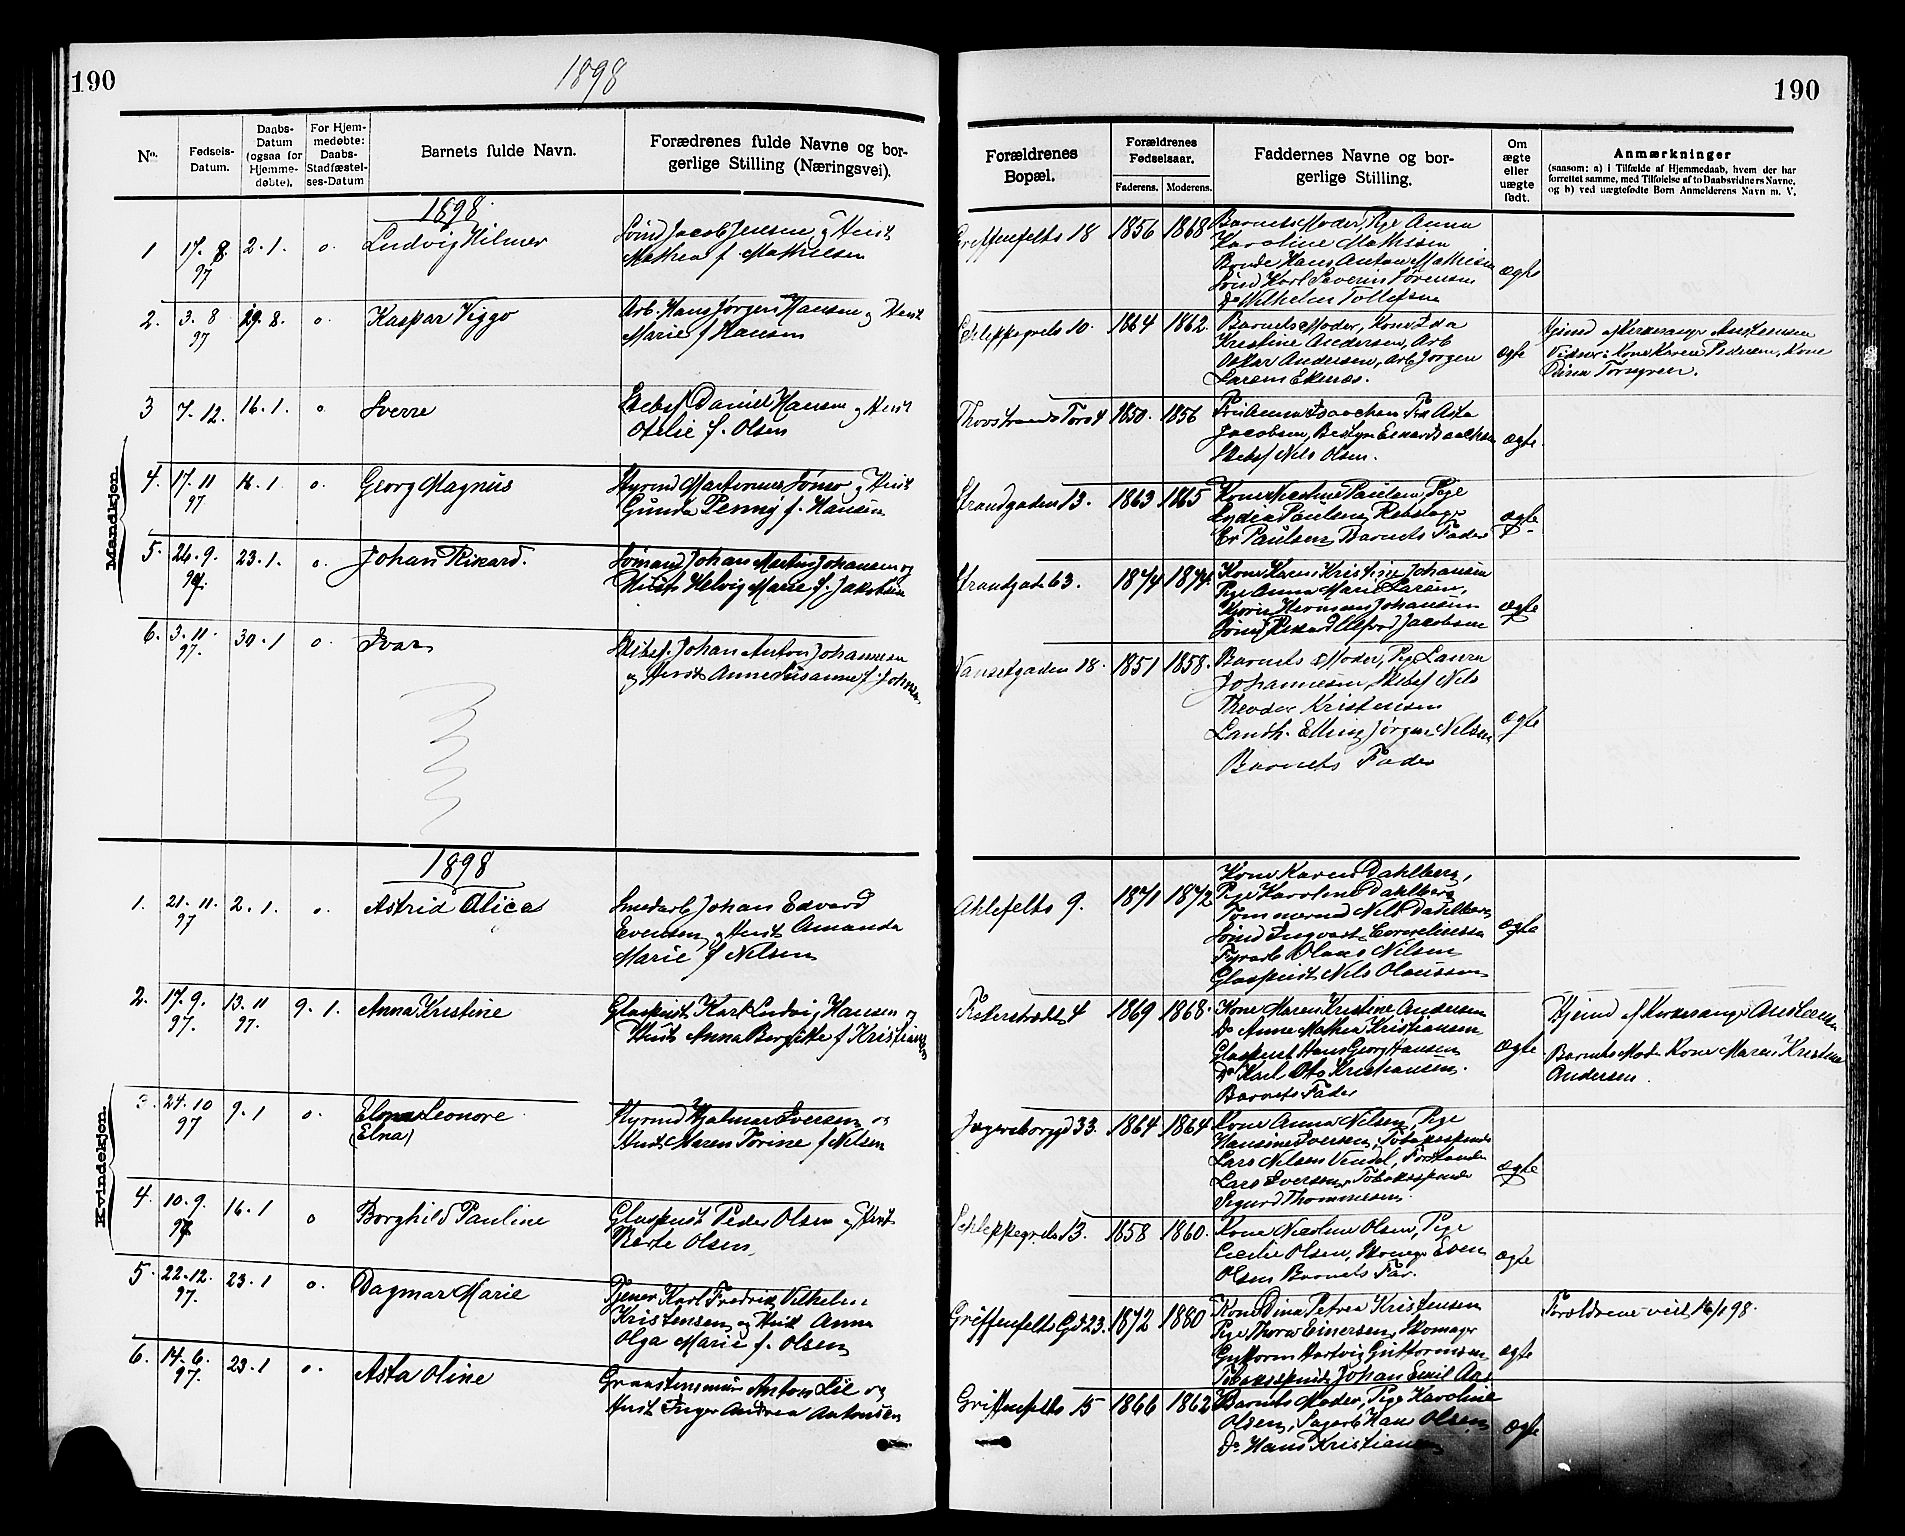 190
1898
190
No.
Fødsels-
Datum.
Daabs-
Datum
(ogsaa for
Hjemme-
døbte).
For Hjem-
medøbte:
Daabs-
Stadfæstel-
ses-Datum
Barnets fulde Navn.
Forædrenes fulde Navne og bor-
gerlige Stilling (Næringsvei).
Forældrenes
Bopæl.
Forældrenes
Fødselsaar.
Faderens.
Moderens.
Faddernes Navne og bor-
gerlige Stilling.
Om
ægte
eller
uægte
født.
Anmærkninger
(saasom: a) i Tilfælde af Hjemmedaab, hvem der har
forrettet samme, med Tilføielse af to Daabsvidners Navne,
og b) ved uægtefødte Børn Anmelderens Navn m. V.
Mandkjøn.
1898.
1 17. 8. 97 2. 1. o. Ludvig Hilmer
Sømd Jacob Jensen og Hust
Mathea f. Mathiesen
Griffenfelts 18 1856 1868
Barnets Moder, Pige Anna
Karoline Mathisen
Bonde Hans Anton Mathisen
Sømd Karl Severin Sørensen
Do Vilhelm Tollefsen
ægte
2. 3. 8 97 29. 8. o. Kaspar Viggo
Arb. Hans Jørgen Hansen og Hust
Marie f Hansen
Schleppegrels 10. 1864 1862.
Barnets Moder, Kone
Kristine Andersen, Arb
Oskar Andersen, Arb Jørgen
Larsen Ekenæs.
ægte
Hjemd af Kirkesanger
Vidner: Kone Karen Pedersen, Kone
3 7. 12. 16. 1. o. Sverre
Daniel Hansen og Hust
Otelie f. Olsen
Torv 4 1850. 1856
Jacobsen,
Nils Olsen.
ægte
4. 17. 11 97 16. 1 o. Georg Magnus
og Hust
Gunda Penny f. Hansen
Strandgaden 13. 1863 1865
Kone Nicoline Paulsen, Pige
Lydia Paulsen,
Paulsen, Barnets Fader
ægte
5. 26. 9. 97. 23. 1. o. Johan Rikard.
Sømand Johan Martin Johansen og
Hust Helvig Marie f. Jakobsen
Strandgade 63. 1874 1874.
Kone Karen Kristine Johansen
Pige Anna Marie Larsen,
Herman Johansen
Sømd Rikard Alfred Jacobsen
ægte
6. 3. 11. 97. 30. 1 o Ivar
Skibsf. Johan Anton Johannesen
og Hust Anne Susanne f.
Nansetgaden 18. 1851 1858.
Barnets Moder, Pige Laura
Johannesen, Skibsf Nils
Theodor Kristensen
Landh. Elling Jørgen Nilsen,
Barnets Fader
ægte
Kvindekjøn.
1898
1. 21. 11. 97 2. 1. o. Astrid Alice
Smedarb Johan Edvard
Evensen og Hust Amanda
Marie f Nilsen
Ahlefelts 9. 1871 1872
Kone Karen Dahlberg,
Pige Karoline Dahlberg
Tømmermd Nils Dahlberg
Sømd Ingvart
Fyrarb Olaus Nilsen
Glaspust Nils Olaussen
ægte
2. 17. 9. 97. 13. 11 97. 9. 1. Anna Kristine
Glaspust Karl Ludvig Hansen og
Hust Anna Bergitte f Kristiansen
4 1869 1868.
Kone Maren Kristine Andersen
Do Anne Mathea Kristiansen
Glaspust Hans Georg Hansen
Do Karl Otto Kristiansen.
Barnets Fader
ægte
Hjemd af Kirkesanger
Barnets Moder Kone Maren Kristine
Andersen.
3. 24. 10 97 9. 1 o. Leonore
(Elna)
Styrmd Hjalmar Iversen og
Hust Maren Torine f Nilsen
Jegersborggd 33. 1864 1864
Kone Anna Nilsen, Pige
Hansine Iversen,
Lars Nilsen
Lars Iversen,
Sigurd Thommesen.
ægte
4. 10. 9. 97 16. 1 o Borghild Pauline
Glaspust Peder Olsen og Hust
Olsen
Schleppegrels 13. 1858 1860.
Kone Nicoline Olsen, Pige
Cecilie Olsen, Even
Olsen Barnets Far.
ægte
5. 22. 12. 97. 23. 1 o. Dagmar Marie
Tjener Karl Fredrik Vilhelm
Kristensen og Hust Anna
Olga Marie f. Olsen
Griffenfelts Gd 23. 1872 1880
Kone Dina Petrea Kristensen
Pige Thora Einersen, Skomager
Guttorm Hartvig Guttormsen
Johan Emil Aas
ægte
Forældrene viet
6. 14. 6. 97. 23. 1 o. Asta Oline
Anton Lie og
Hust Inger Andrea Antonsen
Griffenfelts 15 1866 1862
Barnets Moder, Pige Karoline
Olsen, Sagarb Hans Olsen
Do Hans Kristiansen
ægte